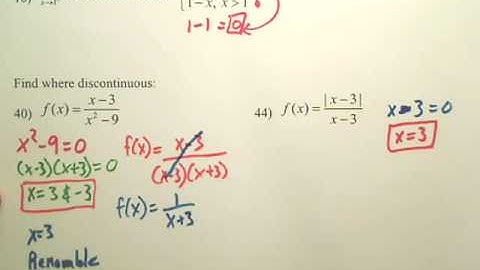 1-1=0
Find where discontinuous:
40) f(x) = x-3 / x²-9
x²-9=0
(x-3)(x+3)=0
x=3 & -3
f(x)= x-3 / (x-3)(x+3)
f(x)= 1 / x+3
x=3
Removable
44) f(x) = |x-3| / x-3
x-3=0
x=3